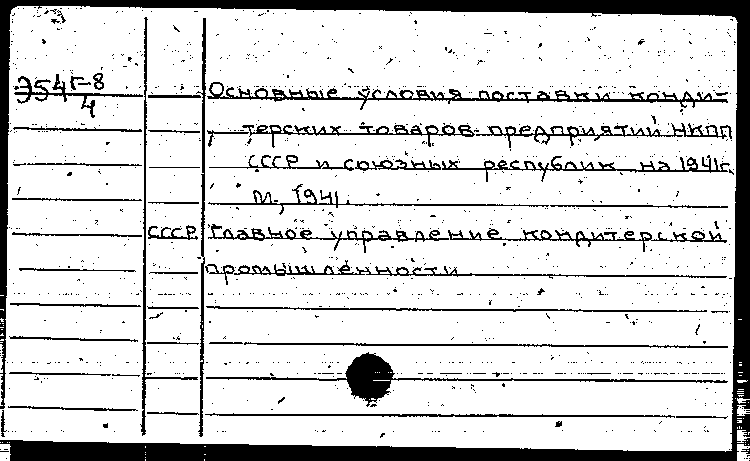 Э54 Г-8/4 Основные условия поставки конди-
терских товаров предприятий НКПП
СССР и союзных республик на 1941г.
М., 1941.
СССР Главное управление кондитерской
промышленности